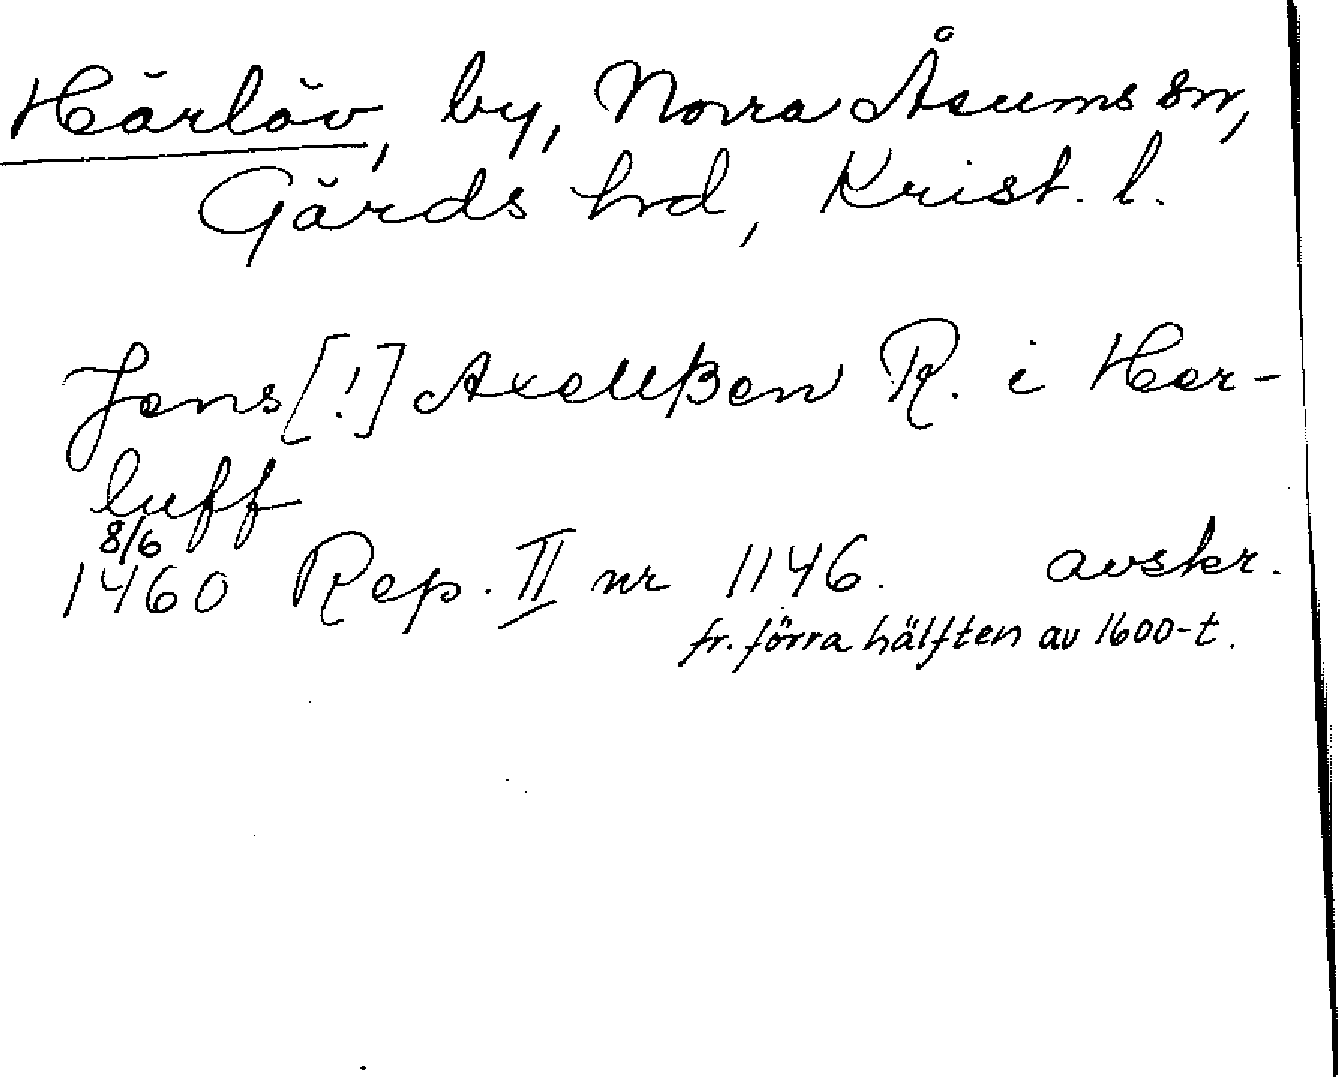 Härlöv, by, Norra Åsums sn,
Gärds hd, Krist. l.
Jens [!] Axelißen R. i Her-
luff
8/6
1460 Rep. II nr 1146. avskr.
fr. förra hälften av 1600-t.